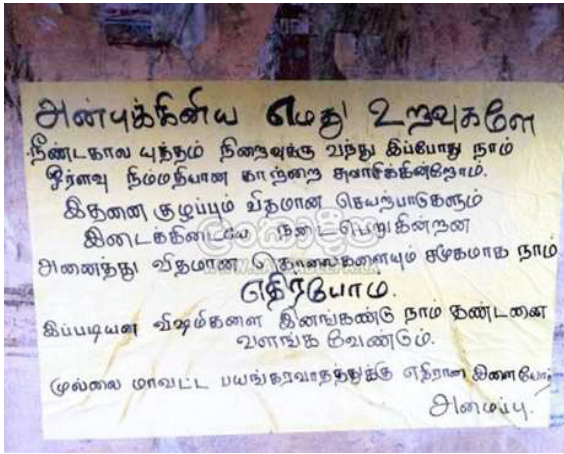 அன்புக்கினிய எமது உறவுகளே
நீண்டகால யுத்தம் நிறைவுக்கு வந்து இப்போது நாம்
ஓரளவு நிம்மதியான காற்றை சுவாசிக்கின்றோம்.
இதனை குழப்பும் விதமான செயற்பாடுகளும்
இடைக்கிடையே நடைபெறுகின்றன
அனைத்து விதமான கொலைகளையும் சமூகமாக நாம்
எதிர்போம்.
இப்படியான விஷமிகளை இனங்கண்டு நாம் தண்டனை
வளங்க வேண்டும்.
முல்லை மாவட்ட பயங்கரவாதத்துக்கு எதிரான இளையோர்
அமைப்பு.